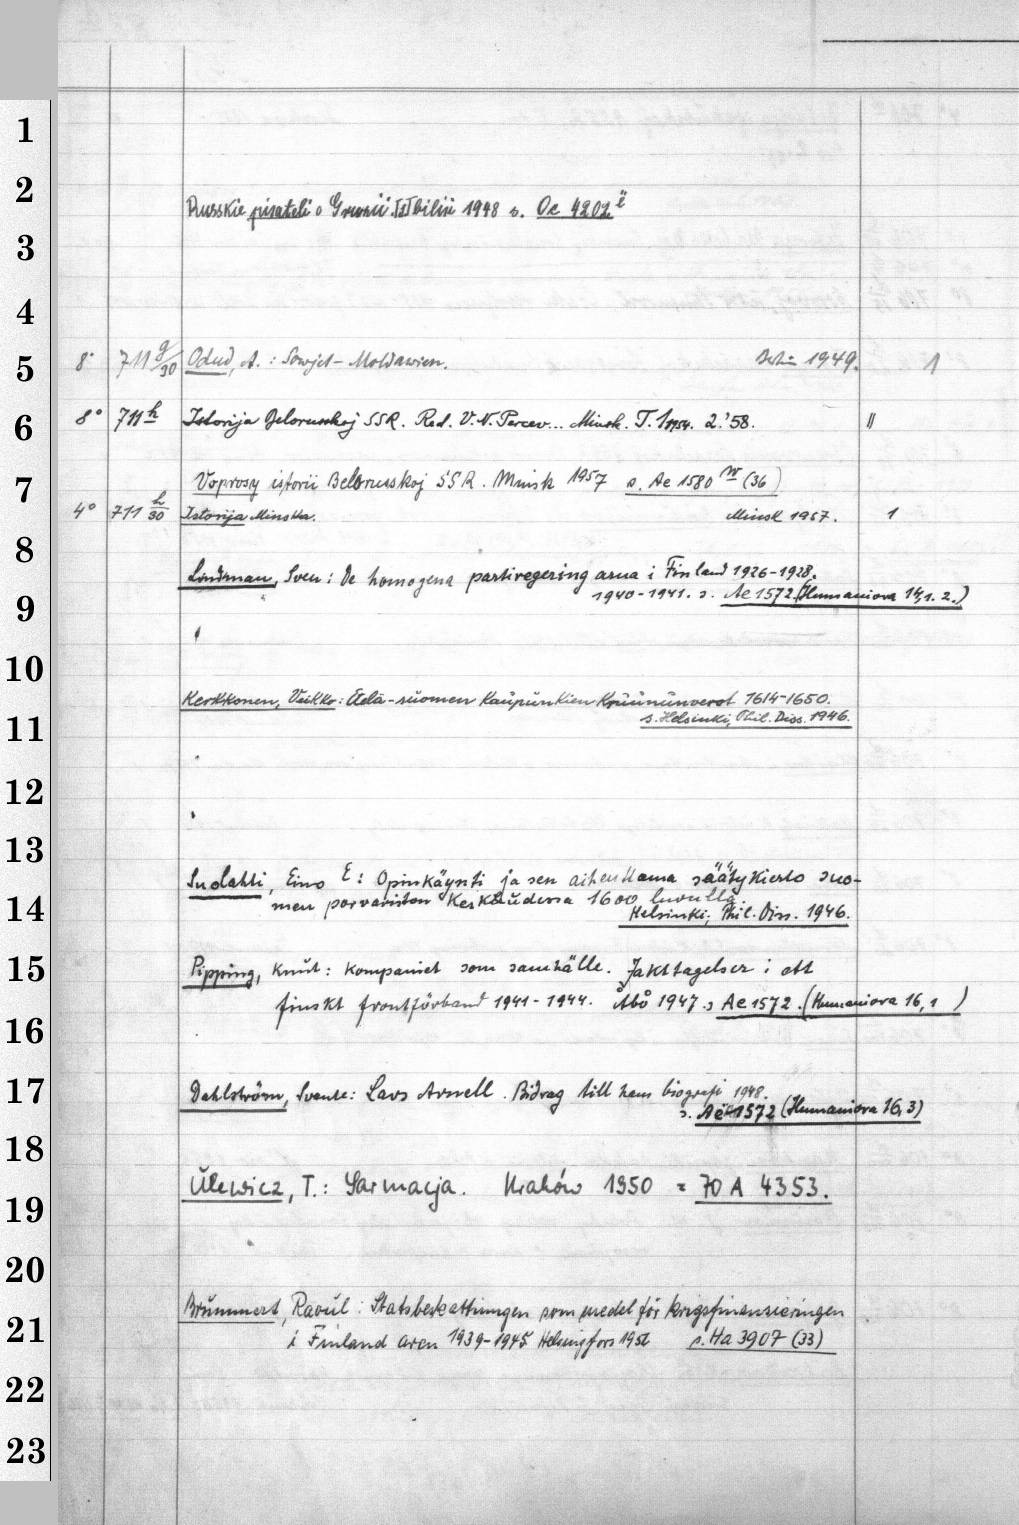 1
2
Russkie pisateli o Gruzii. Tbilisi 1948 s. Oe 4202 ii
3
4
5
8° 711 g/30 Odud, A.: Sowjet-Moldawien. Berlin 1949. 1
6
8° 711 h Istorija Belorusskoj SSR. Red. V.N. Percev... Minsk. T. 1 1954. 2.'58. II
7
Voprosy istorii Belorusskoj SSR. Minsk 1957 s. Ae 1580 w (36)
4° 711 h/30 Istorija Minska. Minsk 1957. 1
8
Lindman, Sven: De homogena partiregeringarna i Finland 1926-1928.
9
1940-1941. s. Ae 1572 (Humaniora 14,1.2.)
10
11
Kerkkonen, Veikko: Etelä-suomen Kaupunkien Kruununverot 1614-1650.
s. Helsinki, Phil. Diss. 1946.
12
13
14
Suolahti, Eino E: Opinkäynti ja sen aiheuttama säätykierto suo-
men porvariston Keskuudessa 1600 luvulla.
Helsinki; Phil. Diss. 1946.
15
Pipping, Knut: Kompaniet som samhälle. Jakttagelser i ett
finskt frontförband 1941-1944. Åbo 1947. s Ae 1572. (Humaniora 16,1)
16
17
Dahlström, Svante: Lars Arnell. Bidrag till hans biografi 1948.
s. Ae 1572 (Humaniora 16,3)
18
19
Ulewicz, T.: Sarmacja. Kraków 1950 = 70 A 4353.
20
21
Brummert, Raoul: Statsbeskattningen som medel för krigsfinansieringen
i Finland aren 1939-1945 Helsingfors 1956 s. Ha 3907 (33)
22
23